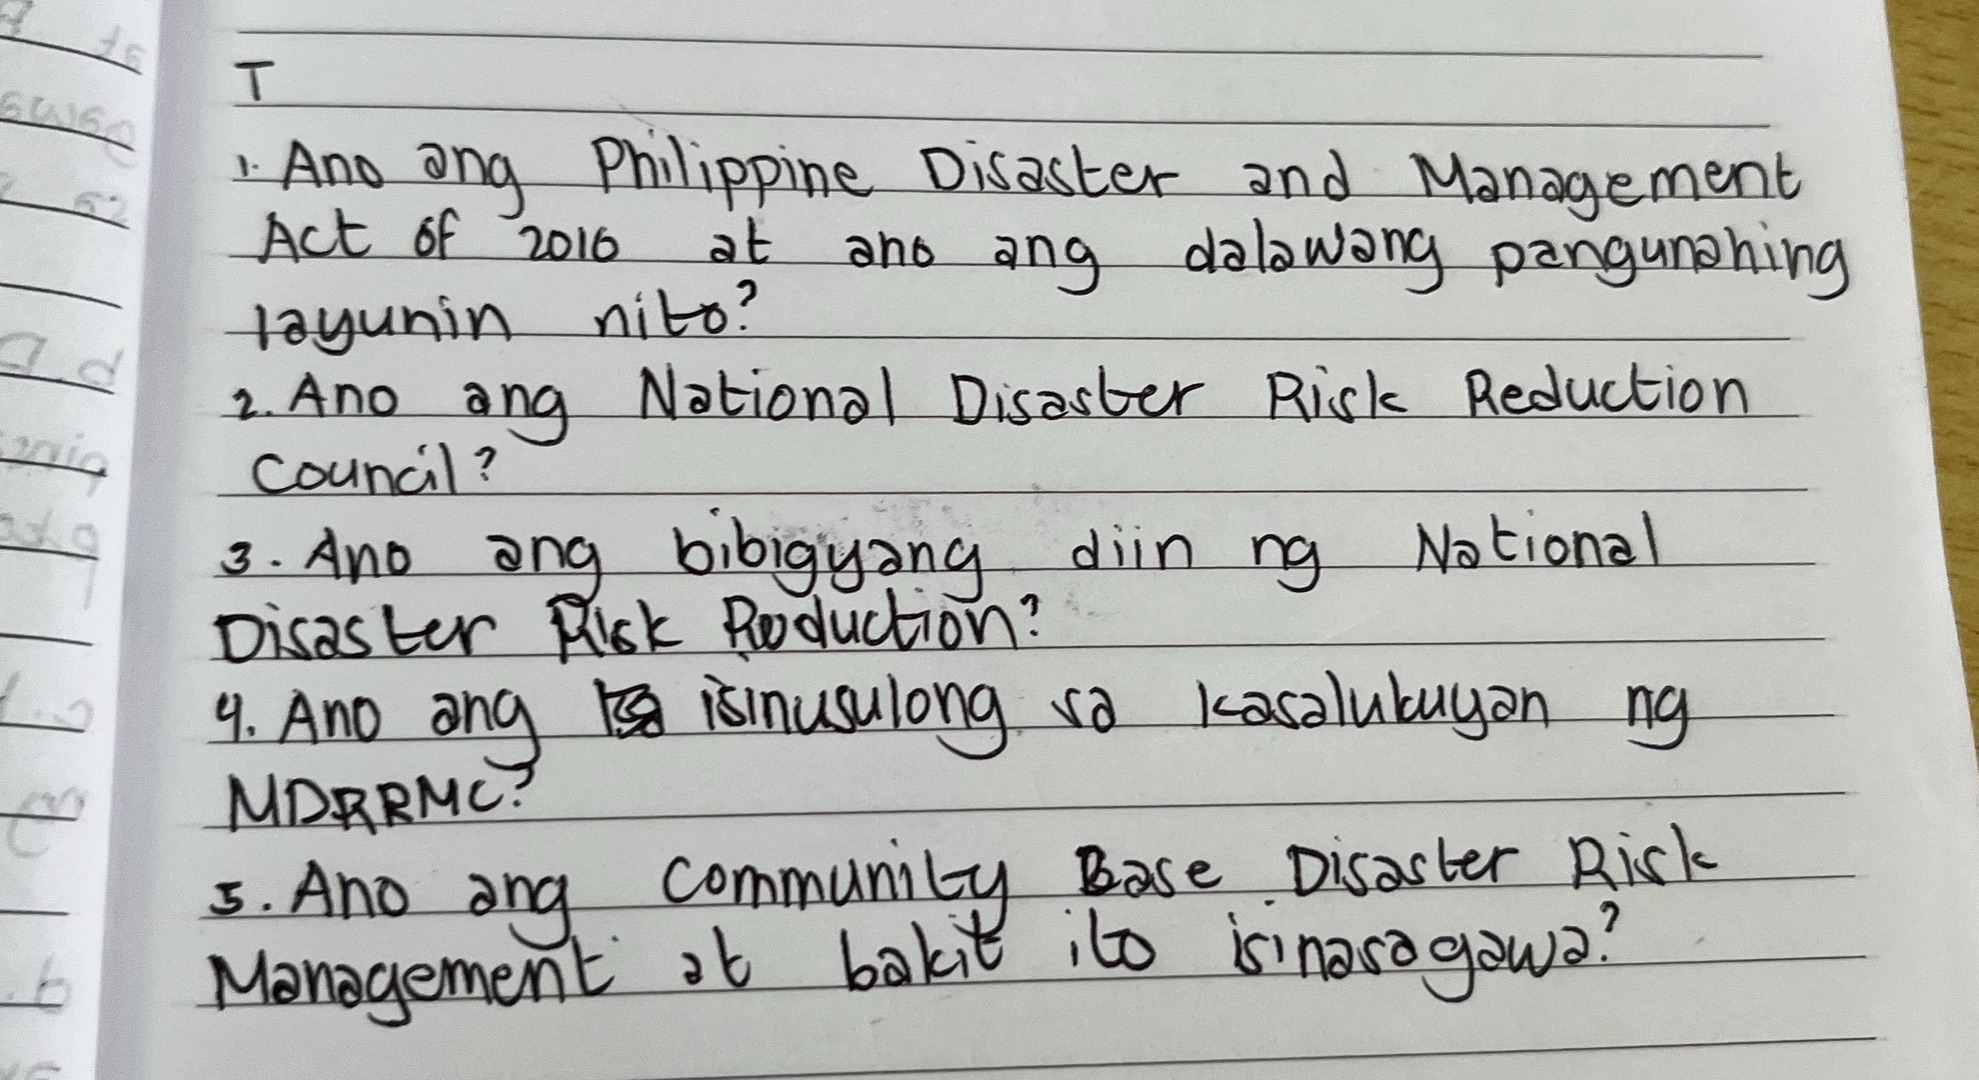 T
1. Ano ang Philippine Disaster and Management
Act of 2010 at ano ang dalawang pangunahing
layunin nito?
2. Ano ang National Disaster Risk Reduction
Council?
3. Ano ang bibigyang diin ng National
Disaster Risk Reduction?
4. Ano ang isinusulong sa kasalukuyan ng
MDRRMC?
5. Ano ang Community Base Disaster Risk
Management at bakit ito isinasagawa?